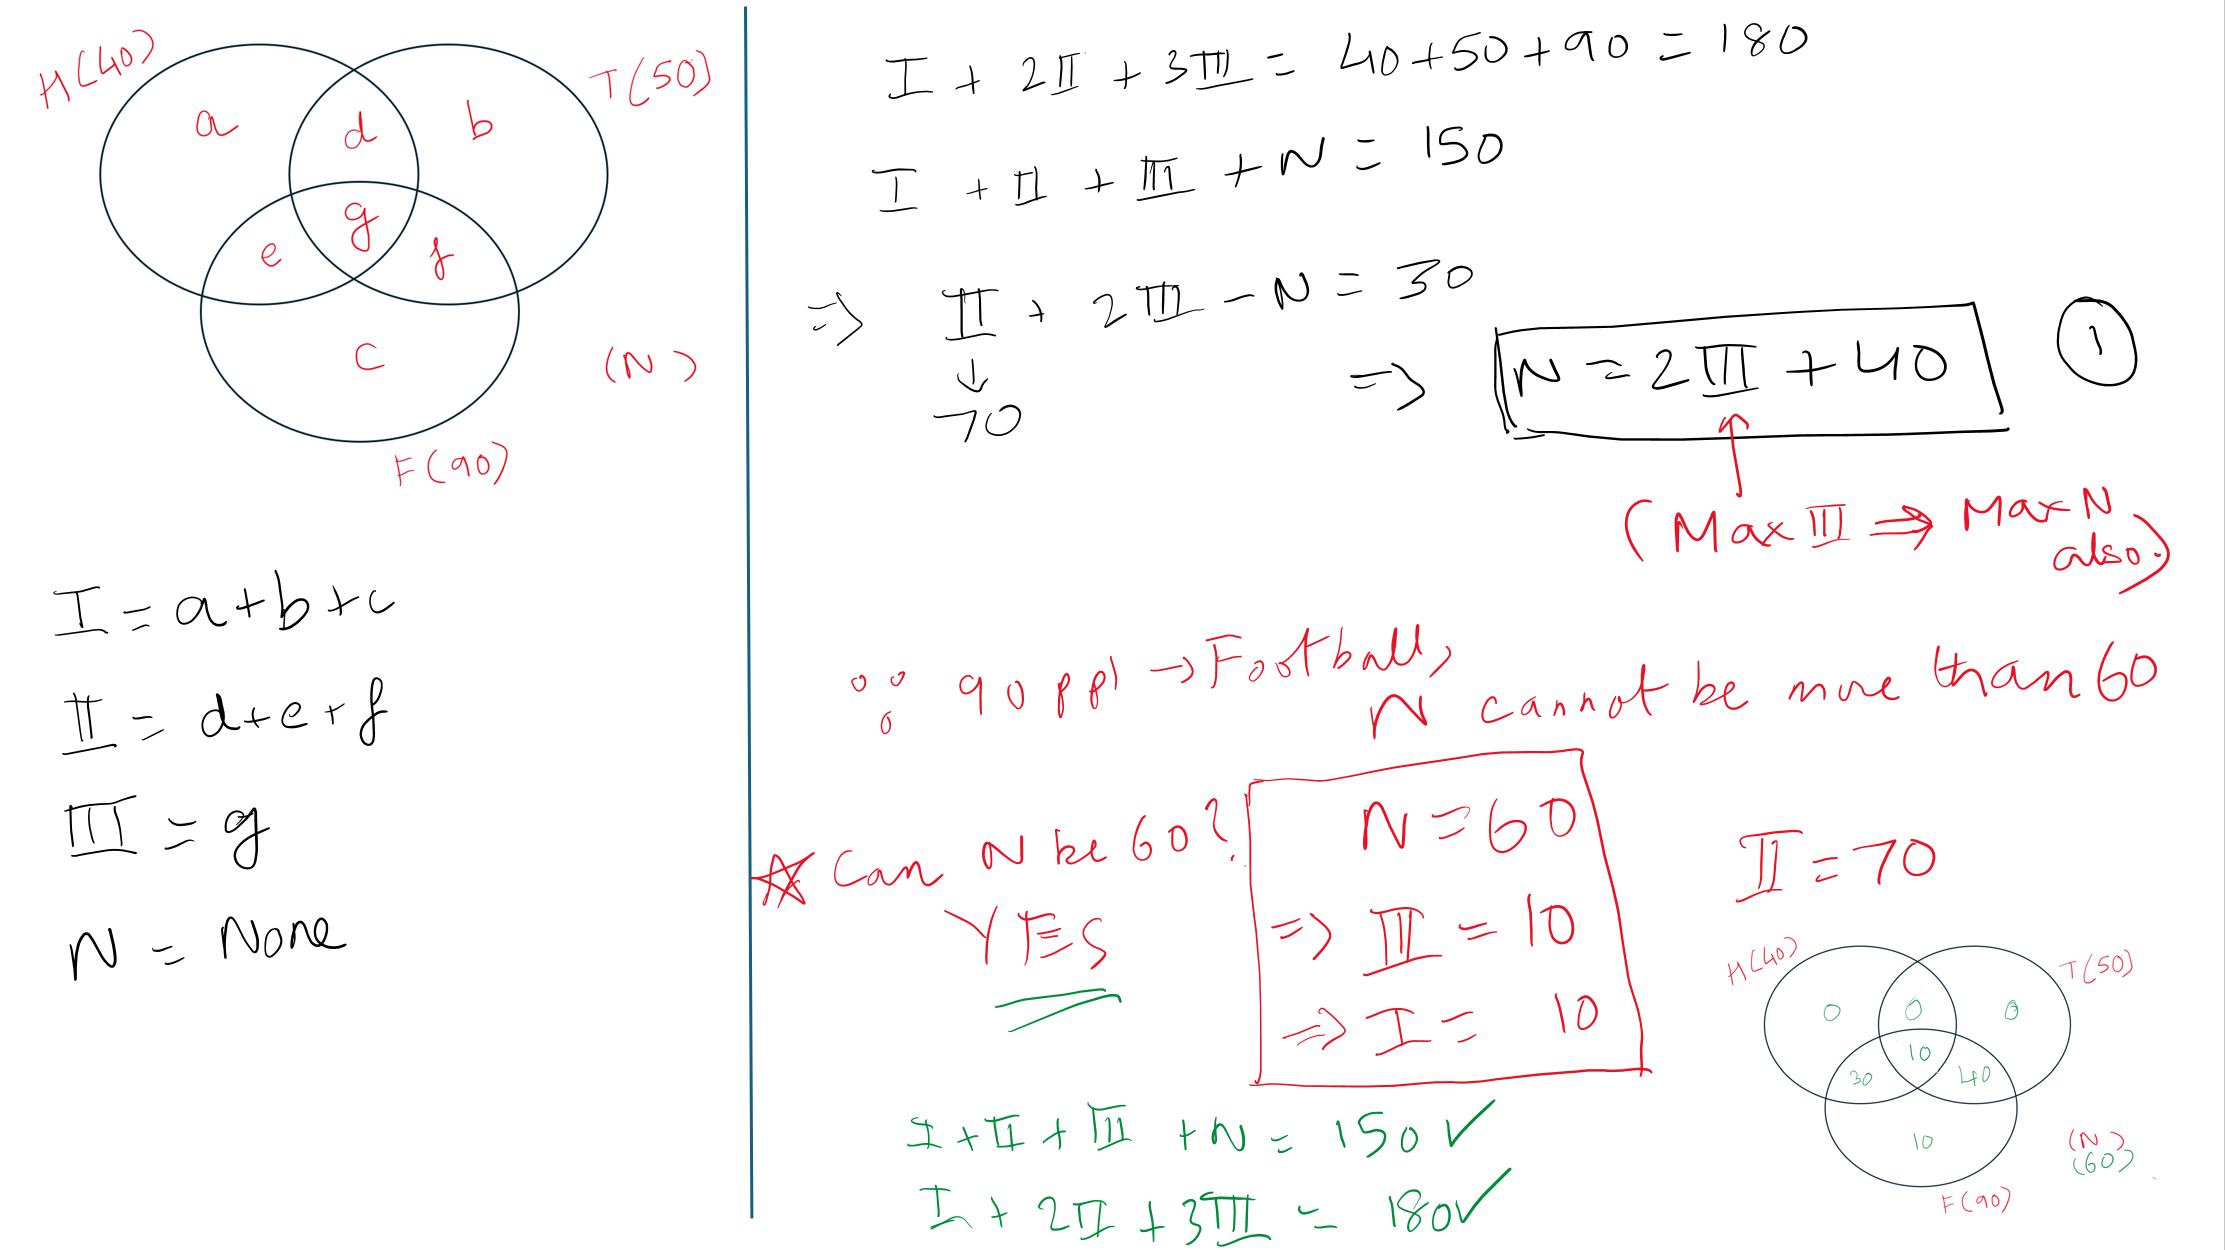 H(40)
T(50)
a
d
b
g
e
f
c
(N)
F(90)
I = a+b+c
II = d+e+f
III = g
N = None
I + 2II + 3III = 40+50+90 = 180
I + II + III + N = 150
⇒ II + 2III - N = 30
↓
70
⇒ N = 2III + 40
1
(Max III ⇒ Max N also.)
∵ 90 ppl → Football,
N cannot be more than 60
☆ Can N be 60?
YES
N = 60
⇒ III = 10
⇒ I = 10
II = 70
H(40)
T(50)
0
0
0
10
30
40
10
(N)
(60)
F(90)
I + II + III + N = 150 ✓
I + 2II + 3III = 180 ✓